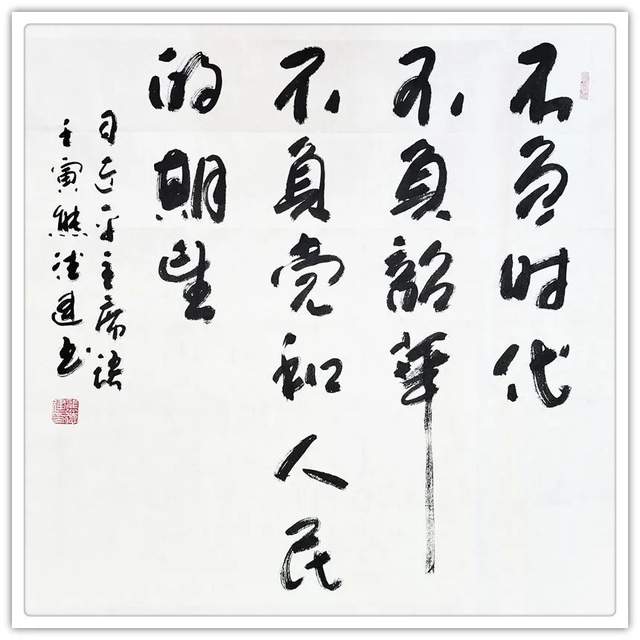 不负时代
不负韶华
不负党和人民
的期望
习近平主席语
壬寅熊德建书